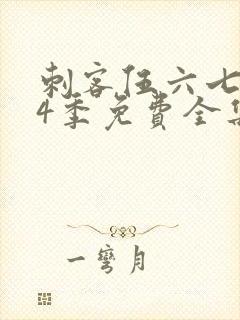 刺客伍六七
4季免费全集
一弯月